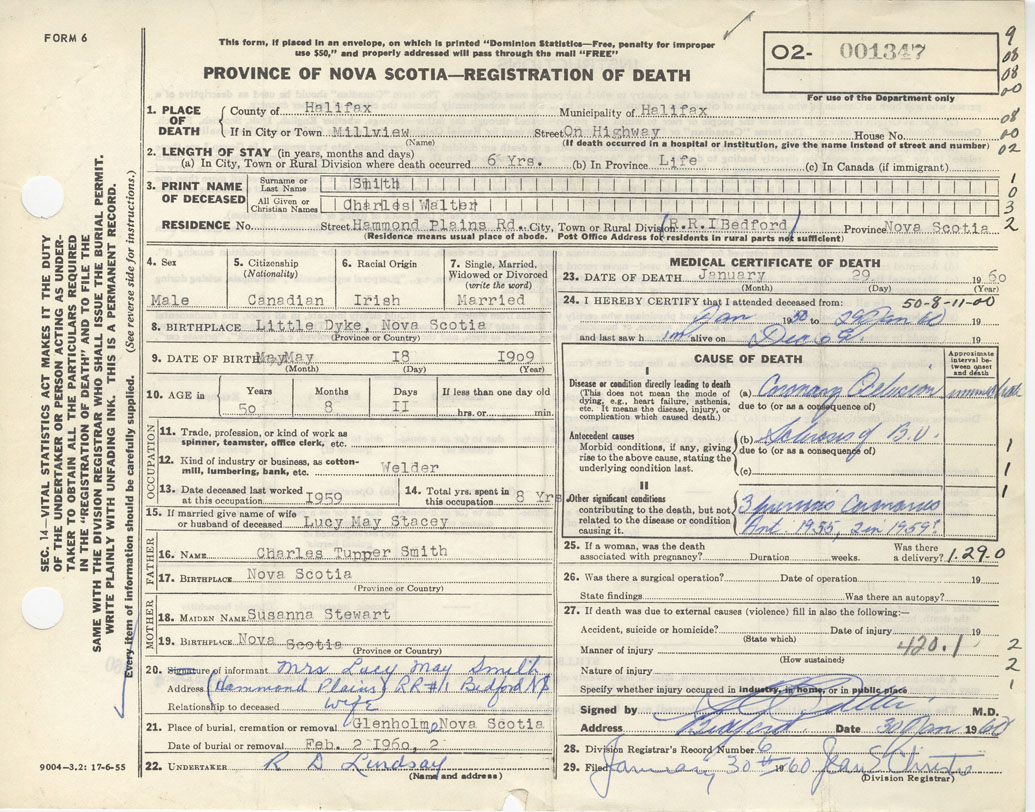 FORM 6
This form, if placed in an envelope, on which is printed "Dominion Statistics—Free, penalty for improper
use $50," and properly addressed will pass through the mail "FREE"
PROVINCE OF NOVA SCOTIA—REGISTRATION OF DEATH
O2- 001347
For use of the Department only
9
08
08
00
08
00
02
1
0
3
2
SEC. 14—VITAL STATISTICS ACT MAKES IT THE DUTY
OF THE UNDERTAKER OR PERSON ACTING AS UNDER-
TAKER TO OBTAIN ALL THE PARTICULARS REQUIRED
IN THE "REGISTRATION OF DEATH" AND TO FILE THE
SAME WITH THE DIVISION REGISTRAR WHO SHALL ISSUE THE BURIAL PERMIT.
WRITE PLAINLY WITH UNFADING INK. THIS IS A PERMANENT RECORD.
Every item of information should be carefully supplied. (See reverse side for instructions.)
1. PLACE OF DEATH
County of Halifax Municipality of Halifax
If in City or Town Millview Street On Highway House No.
(Name) (If death occurred in a hospital or institution, give the name instead of street and number)
2. LENGTH OF STAY (in years, months and days)
(a) In City, Town or Rural Division where death occurred 6 Yrs. (b) In Province Life (c) In Canada (if immigrant)
3. PRINT NAME OF DECEASED
Surname or Last Name Smith
All Given or Christian Names Charles Walter
RESIDENCE No. Street Hammond Plains Rd. City, Town or Rural Division (R.R.I Bedford) Province Nova Scotia
(Residence means usual place of abode. Post Office Address for residents in rural parts not sufficient)
4. Sex
Male
5. Citizenship
(Nationality)
Canadian
6. Racial Origin
Irish
7. Single, Married,
Widowed or Divorced
(write the word)
Married
8. BIRTHPLACE Little Dyke, Nova Scotia
(Province or Country)
9. DATE OF BIRTH May May I8 I9o9
(Month) (Day) (Year)
10. AGE in
Years Months Days If less than one day old
5o 8 II hrs. or min.
OCCUPATION
11. Trade, profession, or kind of work as
spinner, teamster, office clerk, etc.
12. Kind of industry or business, as cotton-
mill, lumbering, bank, etc. Welder
13. Date deceased last worked
at this occupation I959
14. Total yrs. spent in
this occupation 8 Yrs.
15. If married give name of wife
or husband of deceased Lucy May Stacey
FATHER
16. NAME Charles Tupper Smith
17. BIRTHPLACE Nova Scotia
(Province or Country)
MOTHER
18. MAIDEN NAME Susanna Stewart
19. BIRTHPLACE Nova Scotia
(Province or Country)
20. Signature of informant Mrs Lucy May Smith
Address (Hammond Plains) RR#1 Bedford NS
Relationship to deceased Wife
21. Place of burial, cremation or removal Glenholme, Nova Scotia
Date of burial or removal Feb. 2 I96o, 2
22. UNDERTAKER R D Lindsay
(Name and address)
9004-3.2: 17-6-55
MEDICAL CERTIFICATE OF DEATH
23. DATE OF DEATH January 29 19 6o
(Month) (Day) (Year)
24. I HEREBY CERTIFY that I attended deceased from: 50-8-11-00
Jan 19 50 to 29 Jan 60 19
and last saw h im alive on Dec 19
CAUSE OF DEATH
Approximate
interval be-
tween onset
and death
I
Disease or condition directly leading to death
(This does not mean the mode of
dying, e.g., heart failure, asthenia,
etc. It means the disease, injury, or
complication which caused death.)
(a) Coronary Occlusion immediate
due to (or as a consequence of)
Antecedent causes
Morbid conditions, if any, giving
rise to the above cause, stating the
underlying condition last.
(b) Sclerosis of B.V.
due to (or as a consequence of)
(c)
1
1
1
II
Other significant conditions
contributing to the death, but not
related to the disease or condition
causing it.
3 previous Coronaries
1955, 2 in 1959?
25. If a woman, was the death
associated with pregnancy? Duration weeks. Was there
a delivery? 1.29.0
26. Was there a surgical operation? Date of operation 19
State findings Was there an autopsy?
27. If death was due to external causes (violence) fill in also the following:—
Accident, suicide or homicide? Date of injury 19
(State which)
Manner of injury 420.1 2
(How sustained)
Nature of injury 2
Specify whether injury occurred in industry, in home, or in public place 1
Signed by M.D.
Address Bedford Date 30 Jan 19 60
28. Division Registrar's Record Number 6
29. Filed January 30th 19 60 Jean E Christie
(Division Registrar)